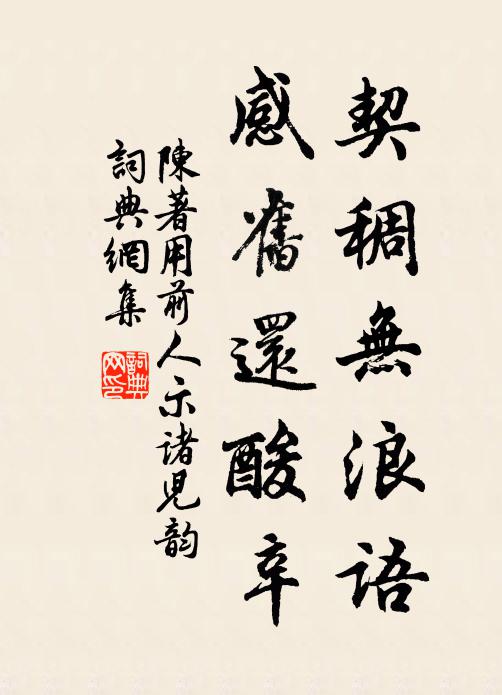 契稠無浪語
感舊還酸辛
陳著用前人示諸兒韵
詞典網集
詞典網印